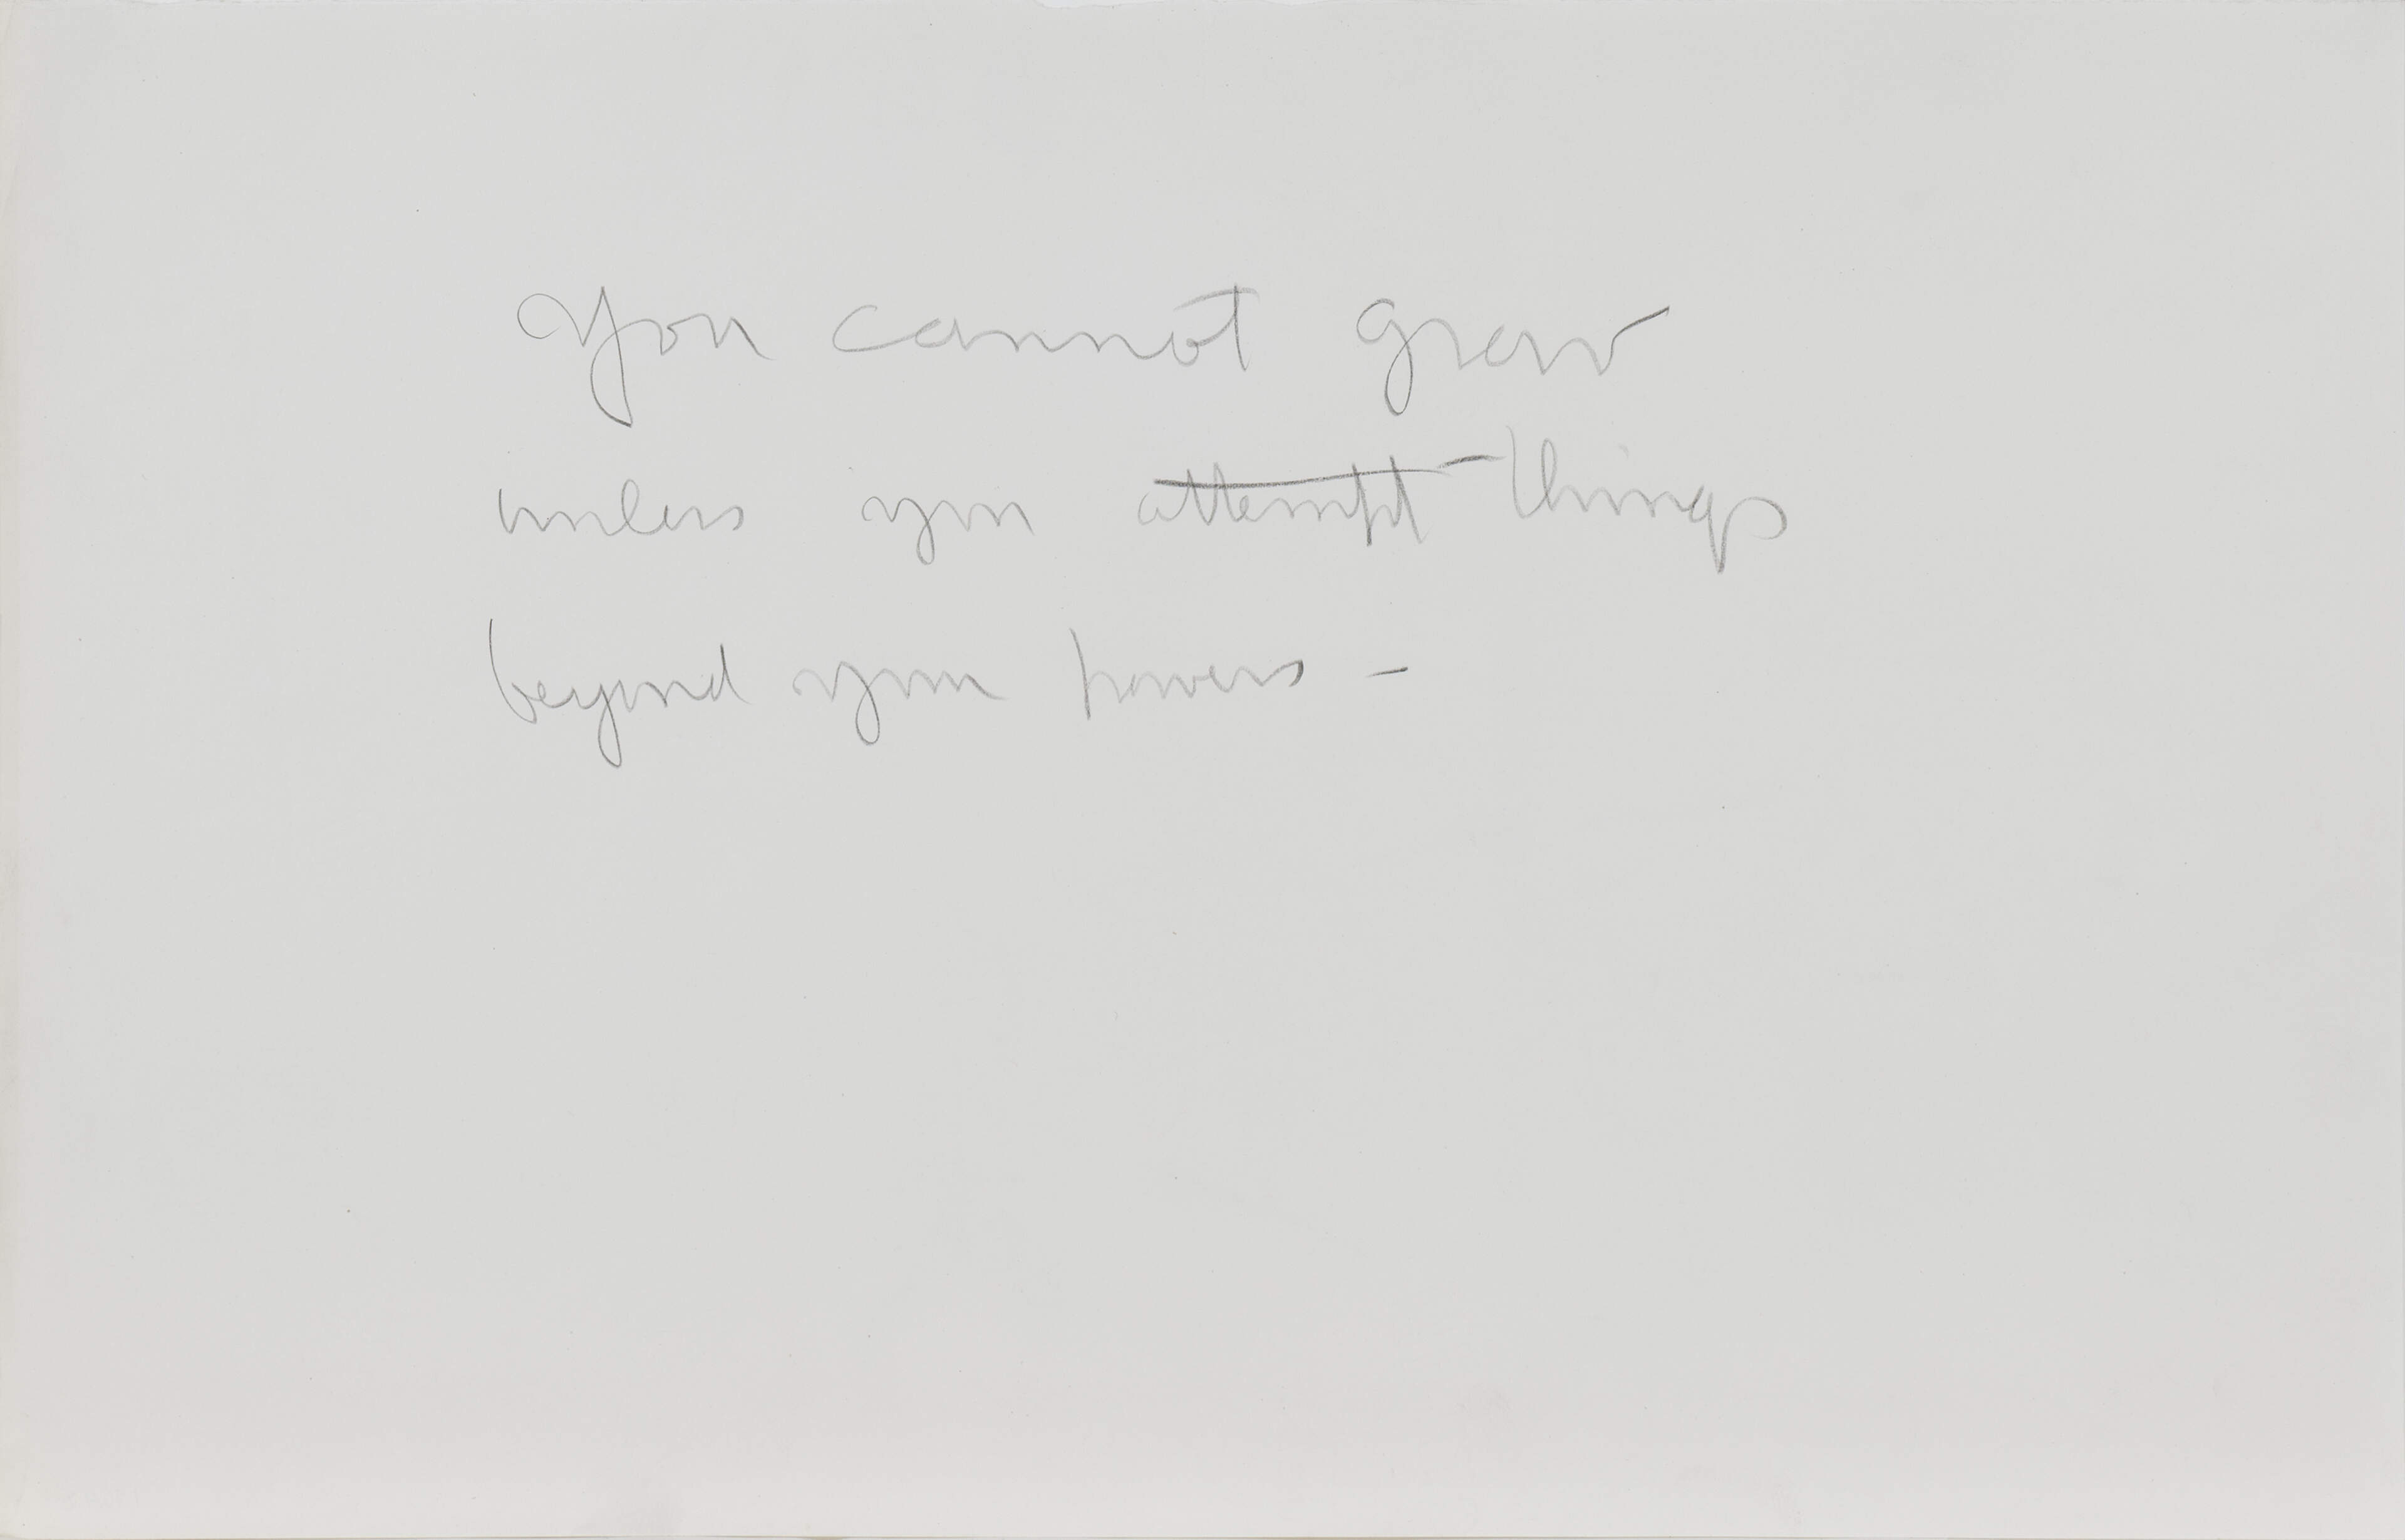 You cannot grow
unless you attempt things
beyond your powers -